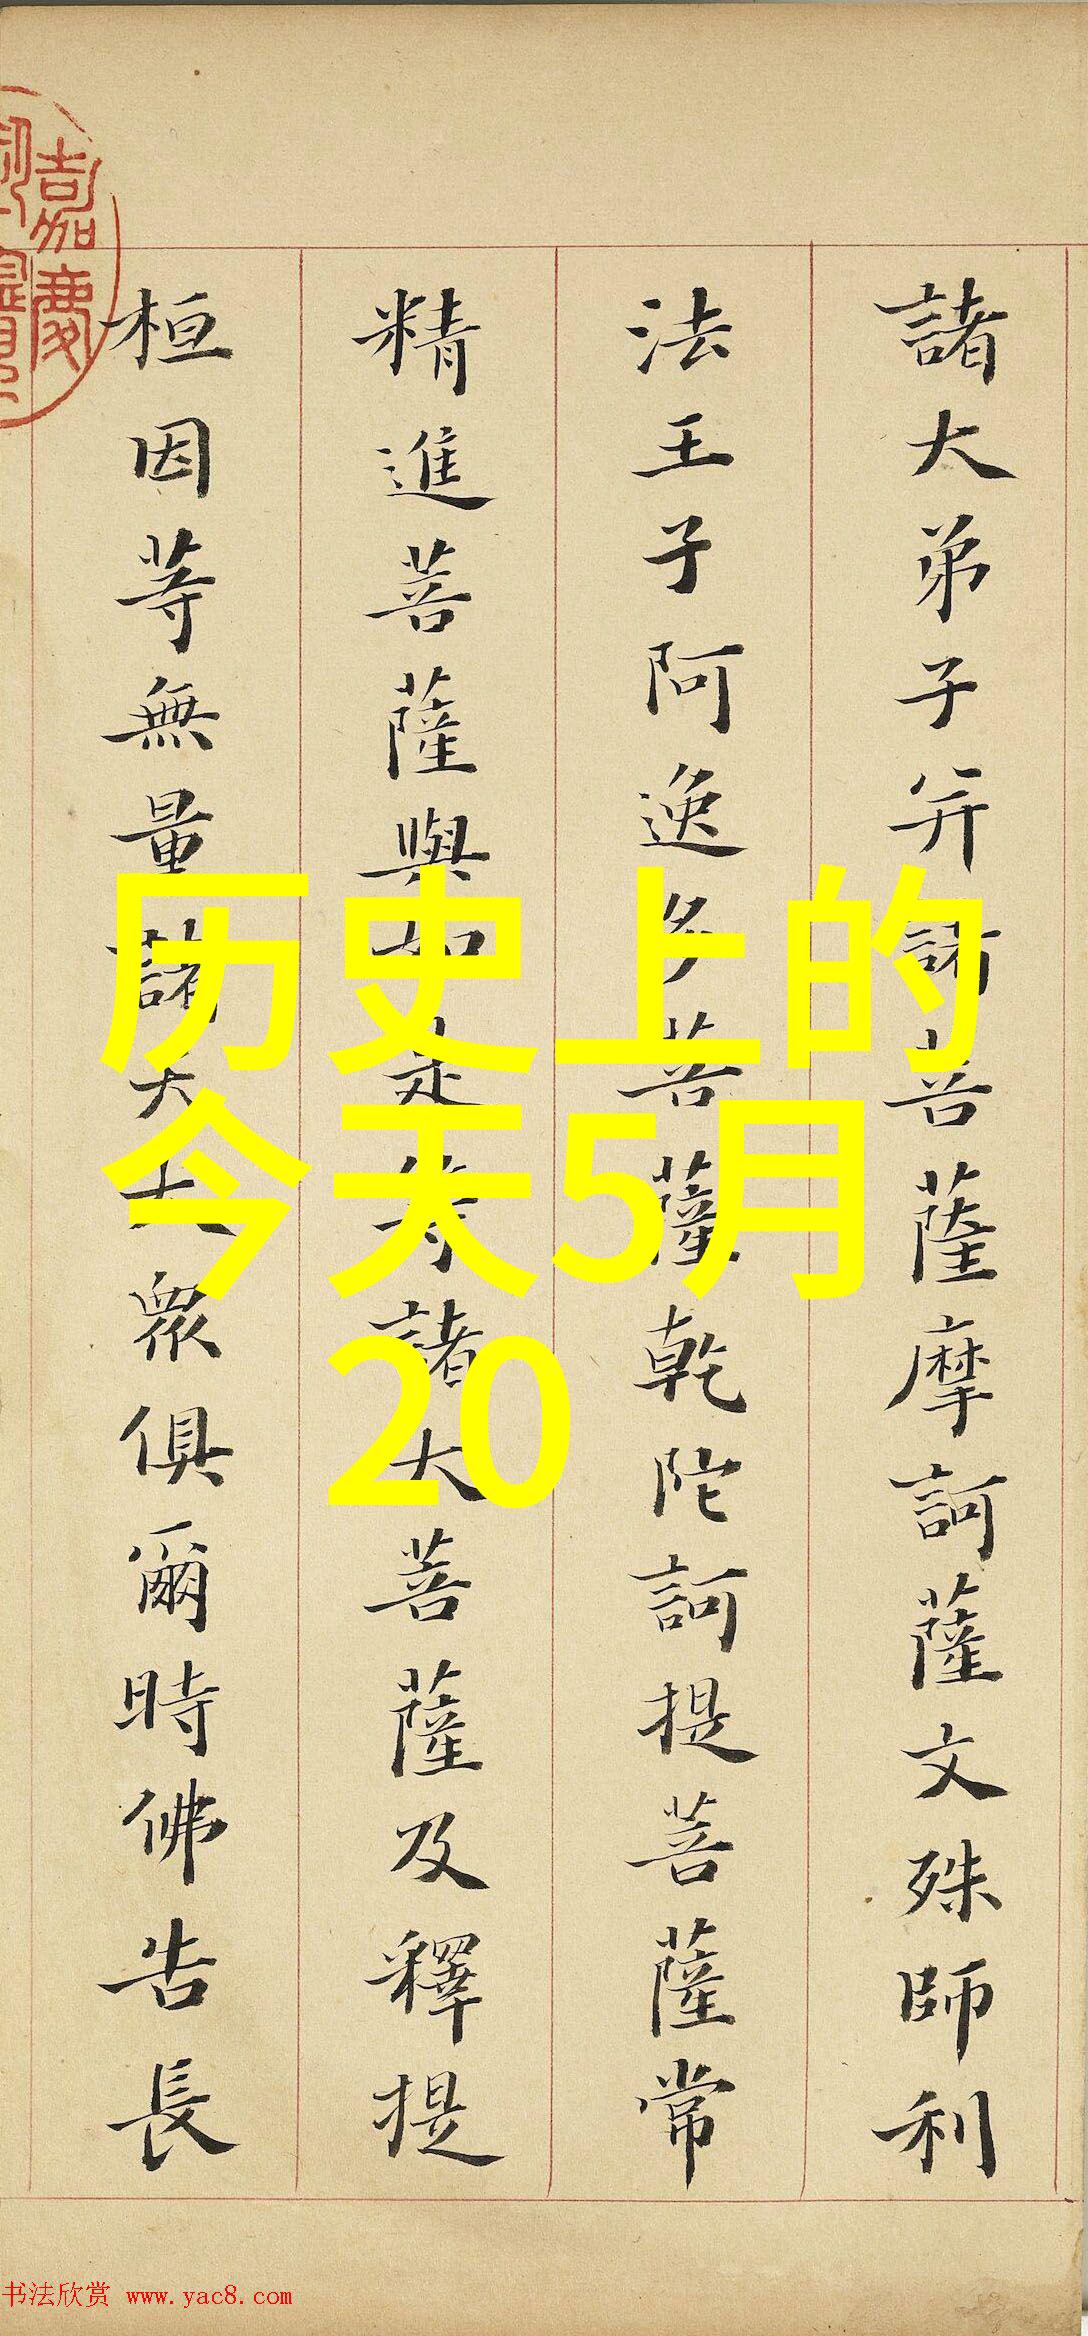 諸大弟子并諸菩薩摩訶薩文殊師利
法王子阿逸多菩薩乾陀訶提菩薩常
精進菩薩與如是等諸大菩薩及釋提
桓因等無量諸天大眾俱爾時佛告長
嘉慶
历史上的
今天5月
20
书法欣赏 www.yac8.com